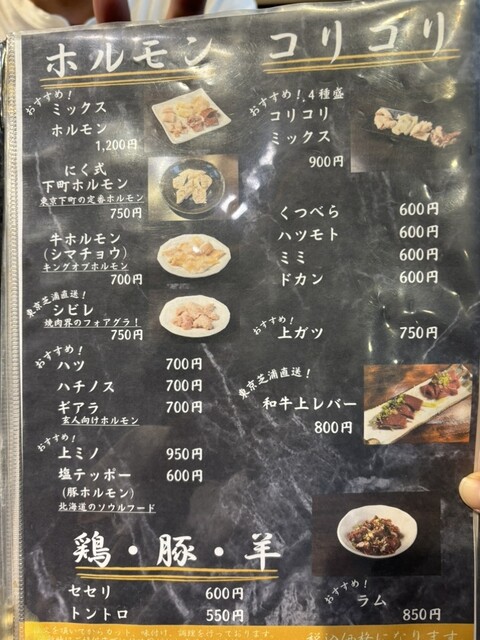 ホルモン
おすすめ!
ミックス
ホルモン
1,200円
にく式
下町ホルモン
東京下町の定番ホルモン
750円
牛ホルモン
(シマチョウ)
キングオブホルモン
700円
東京芝浦直送!
シビレ
焼肉界のフォアグラ!
750円
おすすめ!
ハツ 700円
ハチノス 700円
ギアラ 700円
玄人向けホルモン
おすすめ!
上ミノ 950円
塩テッポー 600円
(豚ホルモン)
北海道のソウルフード
コリコリ
おすすめ!
4種盛
コリコリ
ミックス
900円
くつべら 600円
ハツモト 600円
ミミ 600円
ドカン 600円
おすすめ!
上ガツ 750円
東京芝浦直送!
和牛上レバー
800円
鶏・豚・羊
セセリ 600円
トントロ 550円
おすすめ!
ラム
850円
税込価格になります